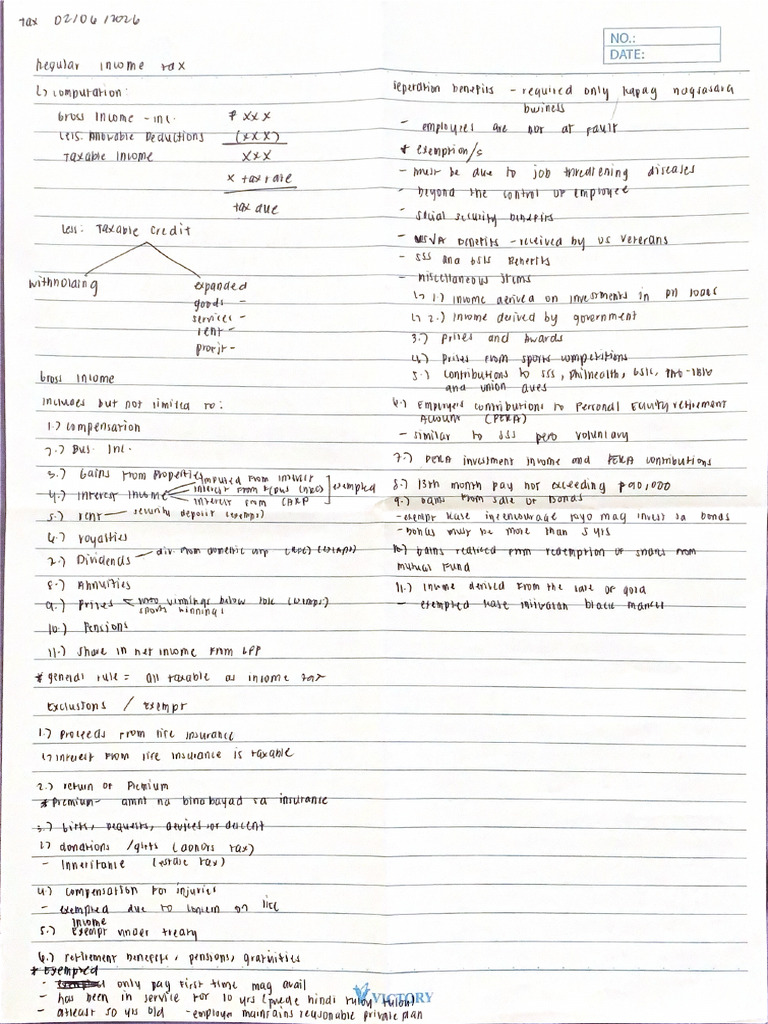 tax 02/06/2026
NO.:
DATE:
Regular income tax
↳ computation:
Gross Income - inc. ₱ xxx
Less. Allowable Deductions (xxx)
Taxable Income xxx
x tax rate
tax due
Less: Taxable Credit
withholding expanded
goods -
services -
rent -
profit -
Gross Income
Includes but not limited to:
1.) Compensation
2.) Bus. Inc.
3.) Gains from Properties
4.) Interest Income
imputed from interest
interest from
interest from
exempted
5.) rent - security deposit (exempt)
6.) royalties
7.) Dividends - div. from domestic corp (exempt)
8.) Annuities
9.) Prizes winnings below 10k (exempt)
sports winnings
10.) Pensions
11.) Share in net income from GPP
* general rule = all taxable as income tax
Exclusions / Exempt
1.) Proceeds from life insurance
↳ interest from life insurance is taxable
2.) return of Premium
* Premium - amnt na binabayad sa insurance
3.) Gifts, bequests, devises or descent
↳ donations / gifts (donors tax)
- Inheritance (estate tax)
4.) Compensation for injuries
- exempted due to concern on life
5.) Income exempt under treaty
6.) retirement benefits, pensions, gratuities
* Exempted
- only pay first time mag avail
- has been in service for 10 yrs (pwede hindi tuloy tuloy)
- atleast 50 yrs old - employer maintains reasonable private plan
seperation benefits - required only kapag nagsasara
business
- employees are not at fault
* exemption/s
- must be due to job threatening diseases
- beyond the control of employee
- social security benefits
- USVA benefits - received by US Veterans
- SSS and GSIS Benefits
- miscellaneous items
↳ 1.) Income derived on investments in PH
↳ 2.) Income derived by government
3.) Prizes and Awards
4.) Prizes from sports competitions
5.) Contributions to SSS, Philhealth, GSIS, PAG-IBIG
and union dues
6.) Employers contributions to Personal Equity retirement
Account (PERA)
- similar to SSS pero voluntary
7.) PERA investment income and PERA contributions
8.) 13th month pay not exceeding ₱90,000
9.) Gains from sale of Bonds
- exempt kase ineencourage tayo mag invest sa bonds
- bonds must be more than 5 yrs
10.) Gains realized from redemption of shares from
mutual Fund
11.) Income derived from the sale of gold
- exempted kase iniiwasan black market
VICTORY